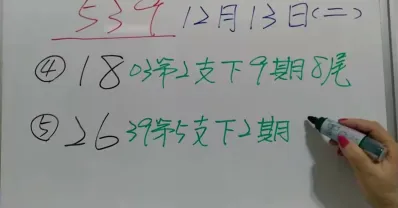 539 12月13日(二)
④ 18 03第2支下9期8尾
⑤ 26 39第5支下2期